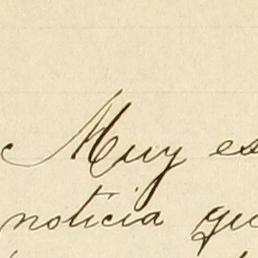 Muy es
noticia qu